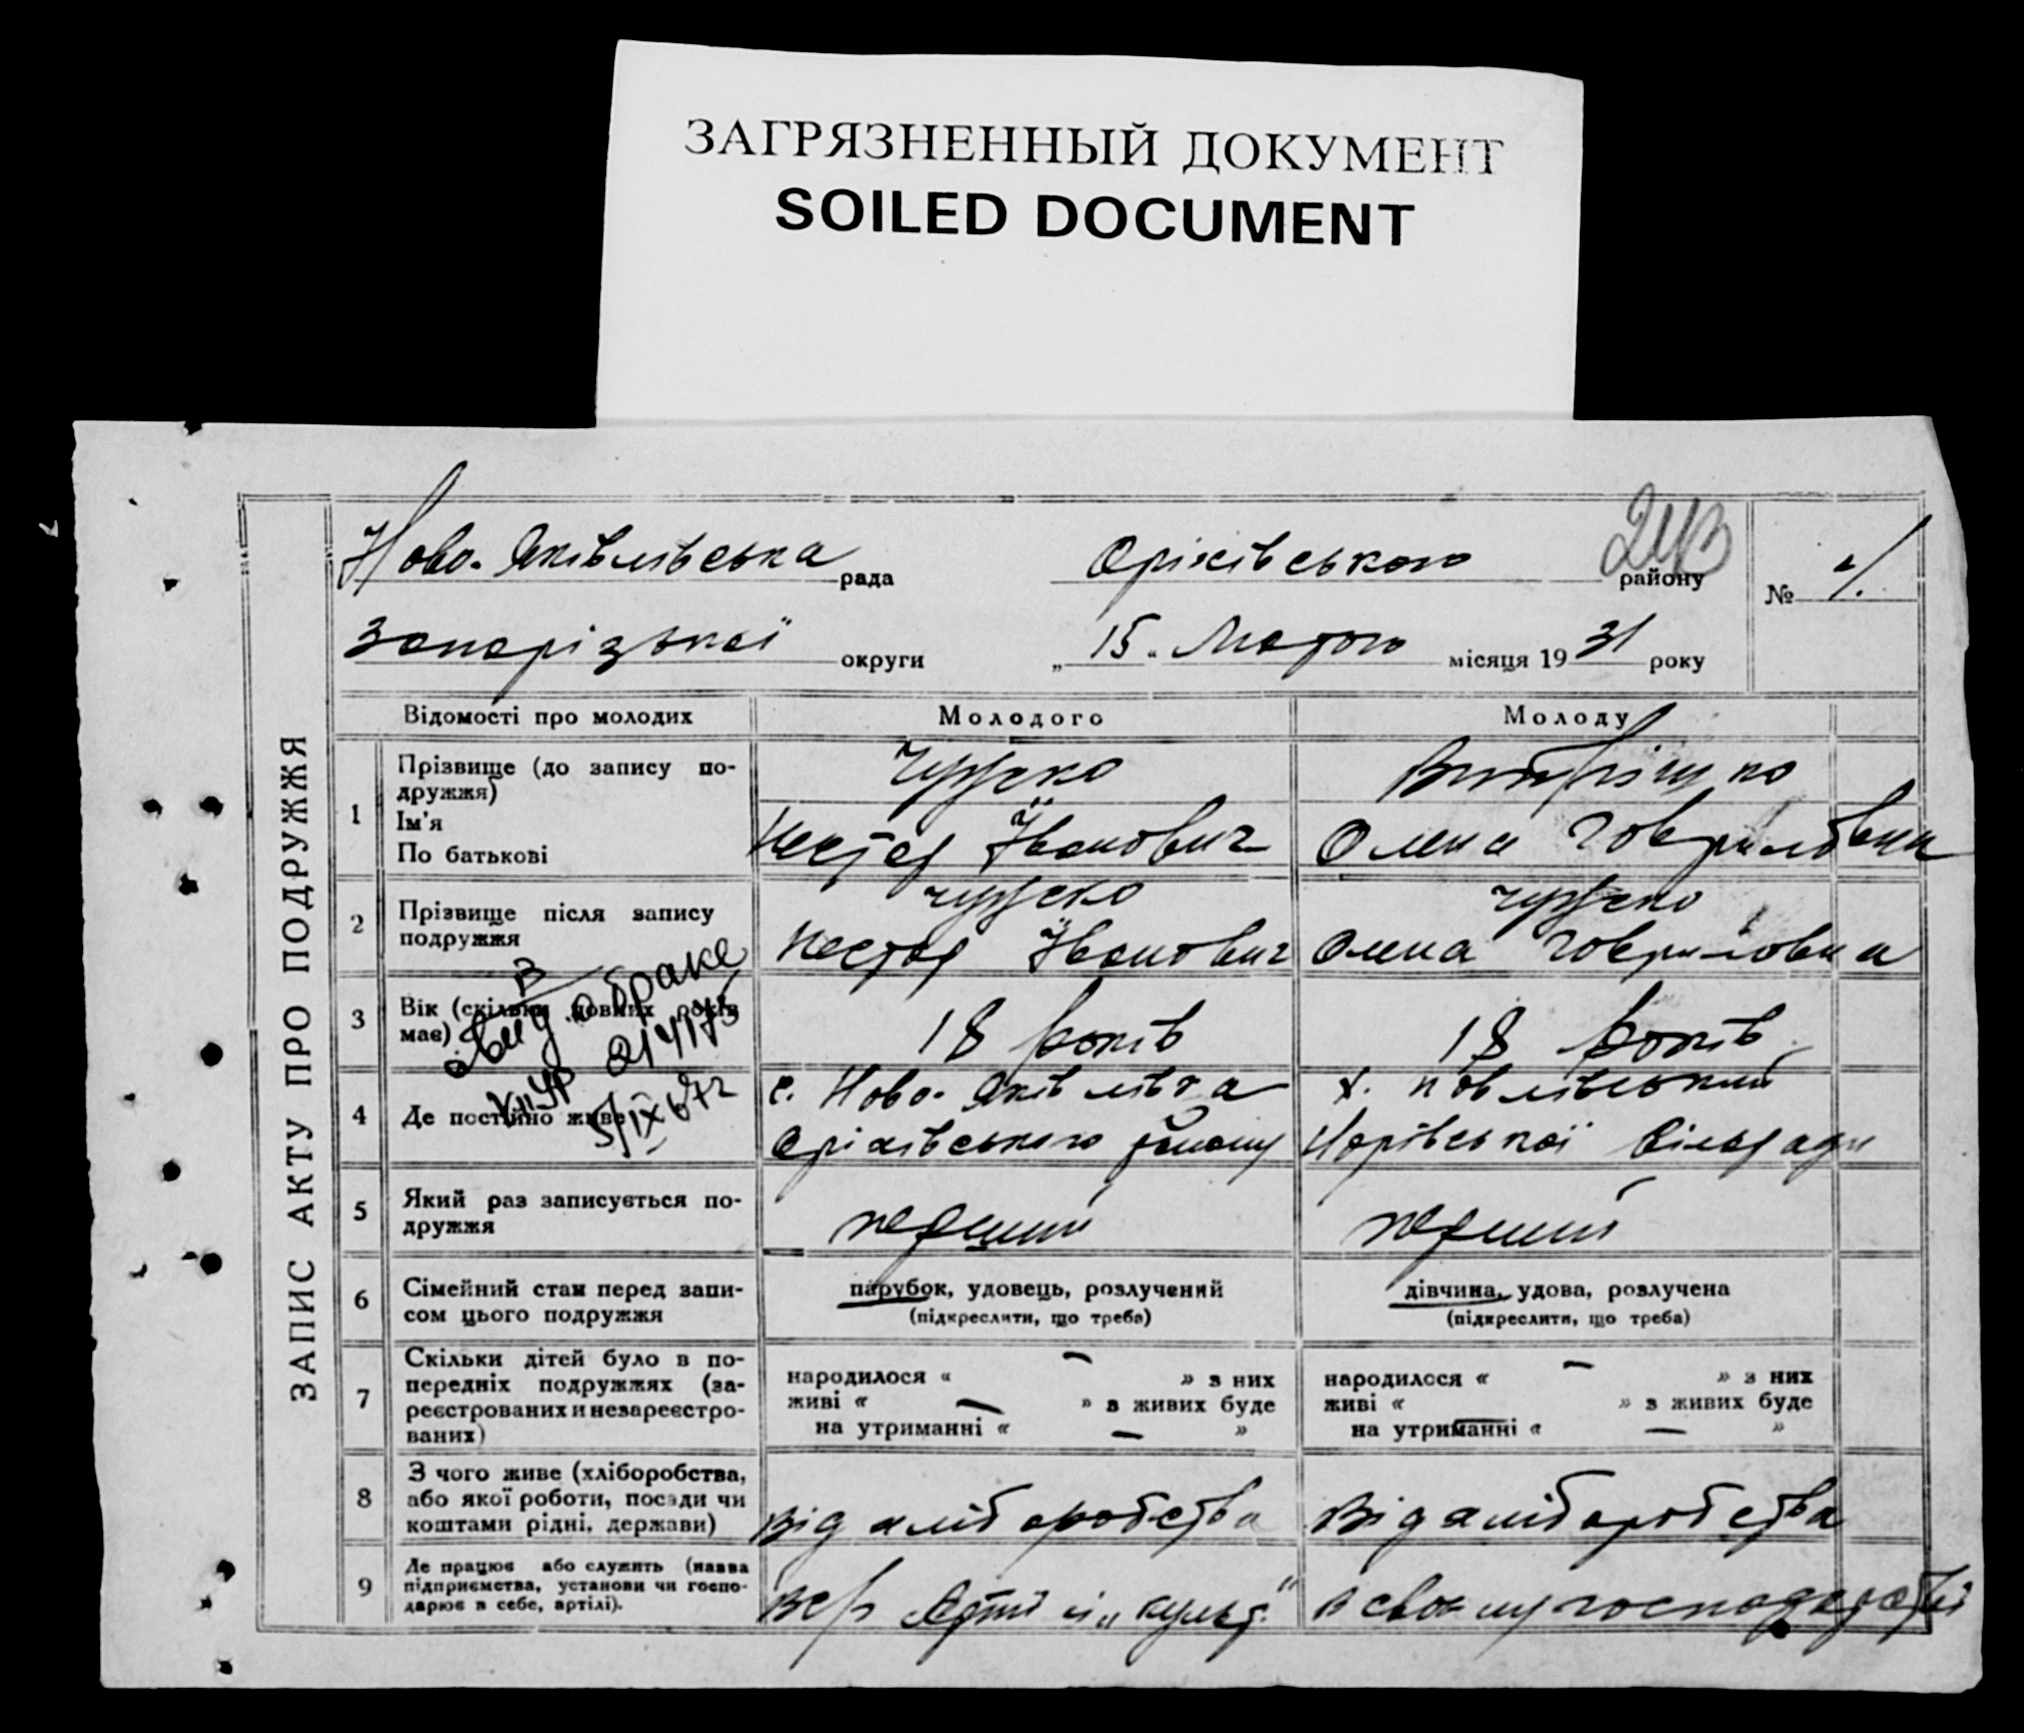 ЗАГРЯЗНЕННЫЙ ДОКУМЕНТ
SOILED DOCUMENT
ЗАПИС АКТУ ПРО ПОДРУЖЖЯ
Ново-Яківлівська рада Оріхівського району №
Запорізької округи „15“ місяця 1931 року
Відомості про молодих Молодого Молоду
1 Прізвище (до запису по-
дружжя)
Ім'я
По батькові
Нестор Іванович
Олена Говриловна
2 Прізвище після запису
подружжя
Нестор Іванович
Олена Говриловна
3 Вік (скільки повних років
має)
18 років
18 років
о браке
4 Де постійно живе
с. Ново-Яківлівка
Оріхівського району
х. Повлівський
сільради
5 Який раз записується по-
дружжя
перший
перший
6 Сімейний стан перед запи-
сом цього подружжя
парубок, удовець, розлучений
(підкреслити, що треба)
дівчина, удова, розлучена
(підкреслити, що треба)
7 Скільки дітей було в по-
передніх подружжях (за-
реєстрованих и незареєстро-
ваних)
народилося « — » з них
живі « — » з живих буде
на утриманні « — »
народилося « — » з них
живі « — » з живих буде
на утриманні « — »
8 З чого живе (хліборобства,
або якої роботи, посади чи
коштами рідні, держави)
Від хліборобства
Від хліборобства
9 Де працює або служить (назва
підприємства, установи чи госпо-
дарює в себе, артілі).
в своєму господарстві